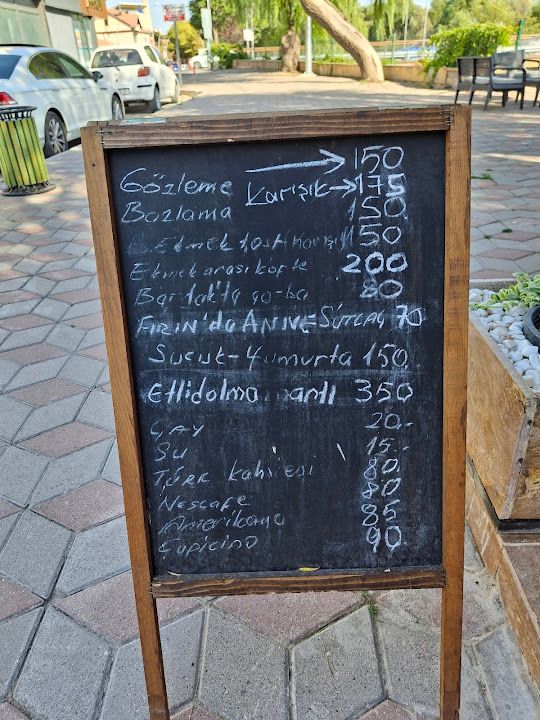 Gözleme → 150
Karışık → 175
Bazlama 150
Ekmek tost karışık 150
Ekmek arası köfte 200
Bardakta çorba 80
FIRIN'da ANNE SÜTLAÇ 70
Sucuk-Yumurta 150
Etlidolma mantı 350
ÇAY 20.-
SU 15.-
TÜRK kahvesi 80
Nescafe 80
Amerikano 85
Çapicino 90